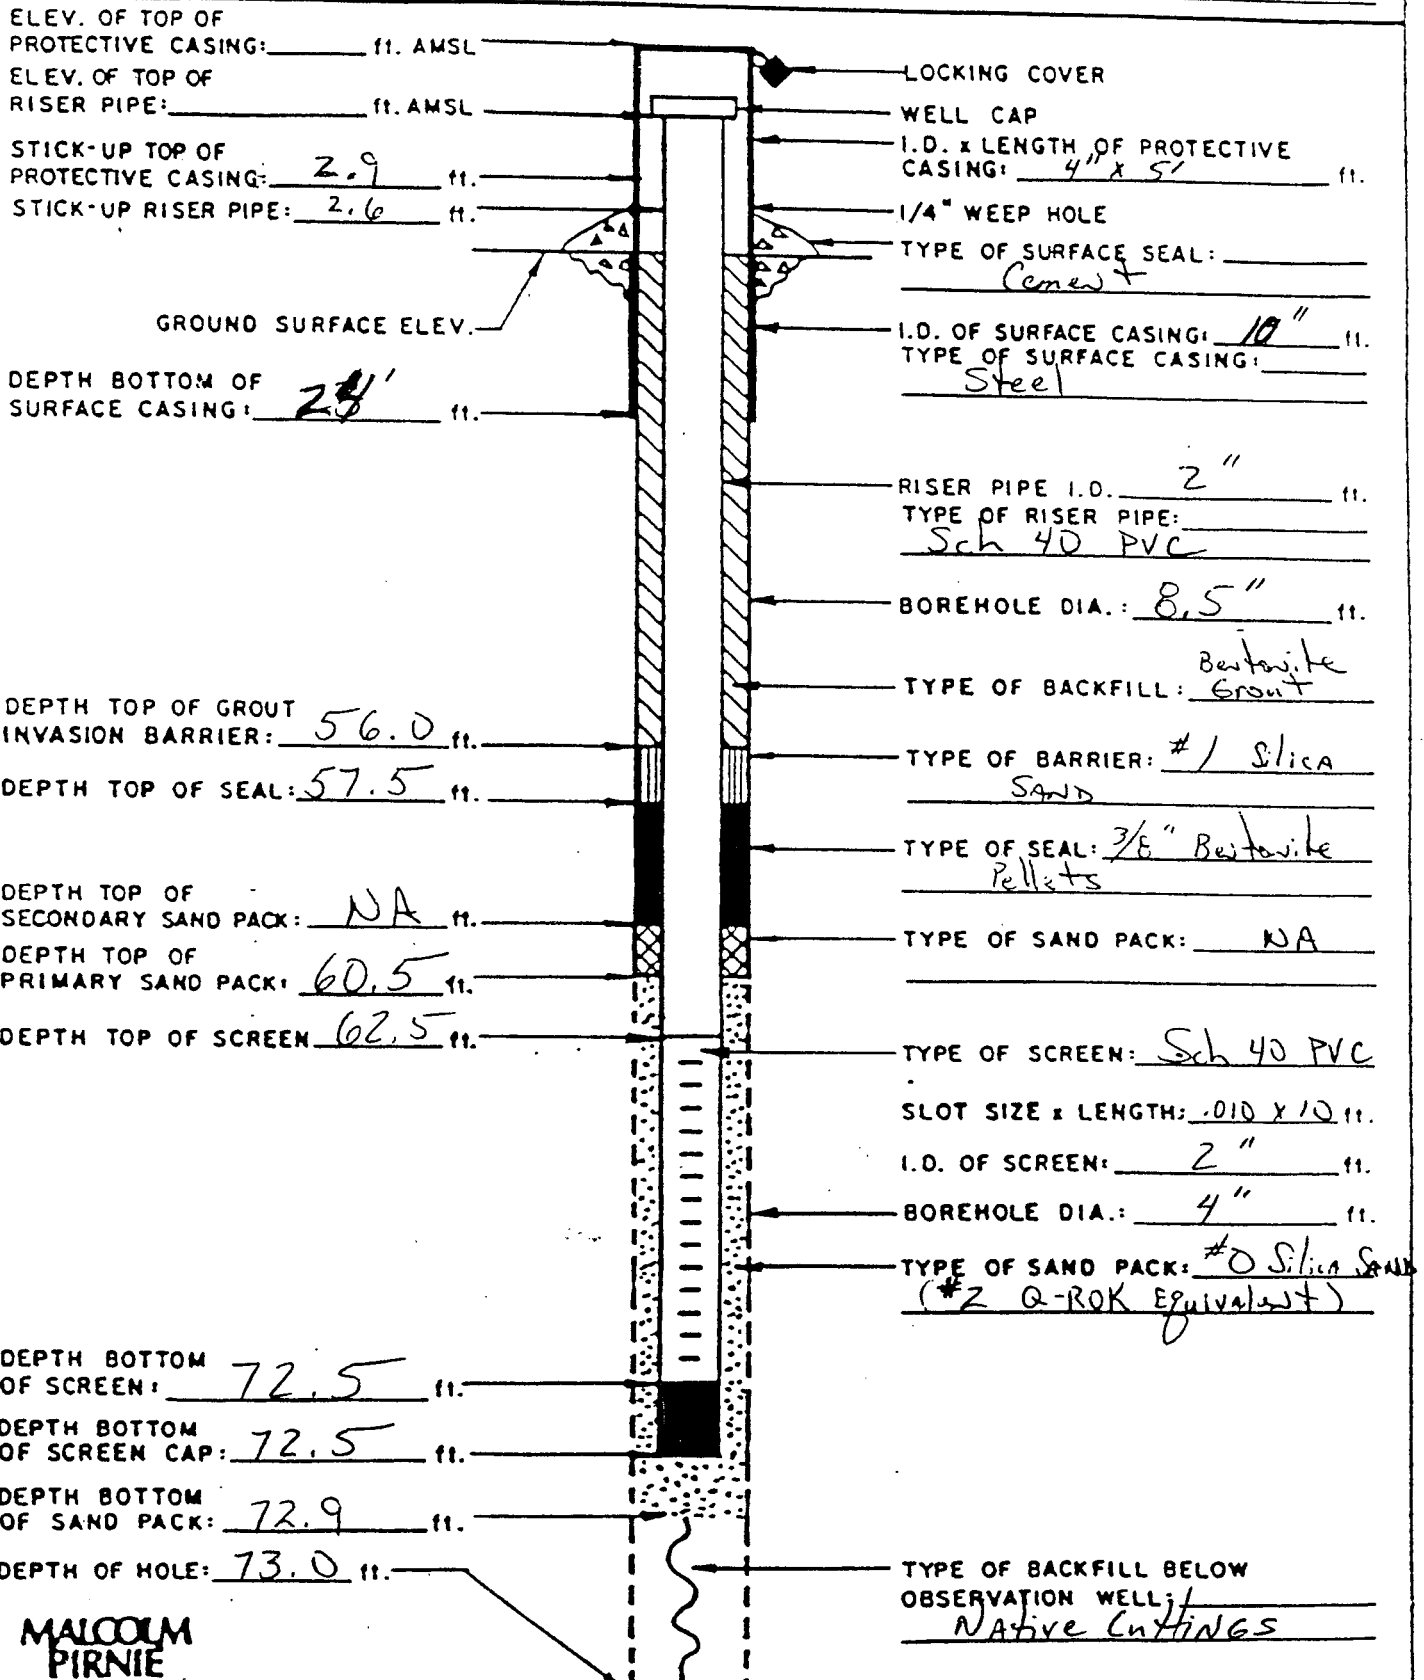 ELEV. OF TOP OF
PROTECTIVE CASING: ft. AMSL
ELEV. OF TOP OF
RISER PIPE: ft. AMSL
STICK-UP TOP OF
PROTECTIVE CASING: 2.9 ft.
STICK-UP RISER PIPE: 2.6 ft.
GROUND SURFACE ELEV.
DEPTH BOTTOM OF
SURFACE CASING: ft.
DEPTH TOP OF GROUT
INVASION BARRIER: 56.0 ft.
DEPTH TOP OF SEAL: 57.5 ft.
DEPTH TOP OF
SECONDARY SAND PACK: NA ft.
DEPTH TOP OF
PRIMARY SAND PACK: 60.5 ft.
DEPTH TOP OF SCREEN 62.5 ft.
DEPTH BOTTOM
OF SCREEN: 72.5 ft.
DEPTH BOTTOM
OF SCREEN CAP: 72.5 ft.
DEPTH BOTTOM
OF SAND PACK: 72.9 ft.
DEPTH OF HOLE: 73.0 ft.
MALCOLM
PIRNIE
LOCKING COVER
WELL CAP
I.D. x LENGTH OF PROTECTIVE
CASING: 4" X 5' ft.
1/4" WEEP HOLE
TYPE OF SURFACE SEAL:
Cement
I.D. OF SURFACE CASING: 10" ft.
TYPE OF SURFACE CASING:
Steel
RISER PIPE I.D. 2" ft.
TYPE OF RISER PIPE:
Sch 40 PVC
BOREHOLE DIA.: 8.5" ft.
Bentonite
TYPE OF BACKFILL: Grout
TYPE OF BARRIER: #1 Silica
SAND
TYPE OF SEAL: 3/8" Bentonite
Pellets
TYPE OF SAND PACK: NA
TYPE OF SCREEN: Sch 40 PVC
SLOT SIZE x LENGTH: .010 X 10 ft.
I.D. OF SCREEN: 2" ft.
BOREHOLE DIA.: 4" ft.
TYPE OF SAND PACK: #0 Silica SAND
(#2 Q-ROK Equivalent)
TYPE OF BACKFILL BELOW
OBSERVATION WELL:
NAtive CuttiNGS